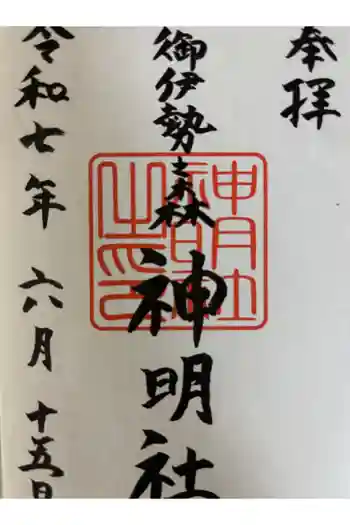 奉拝
御伊勢森
神明社
令和七年 六月 十五日
神明社
之印